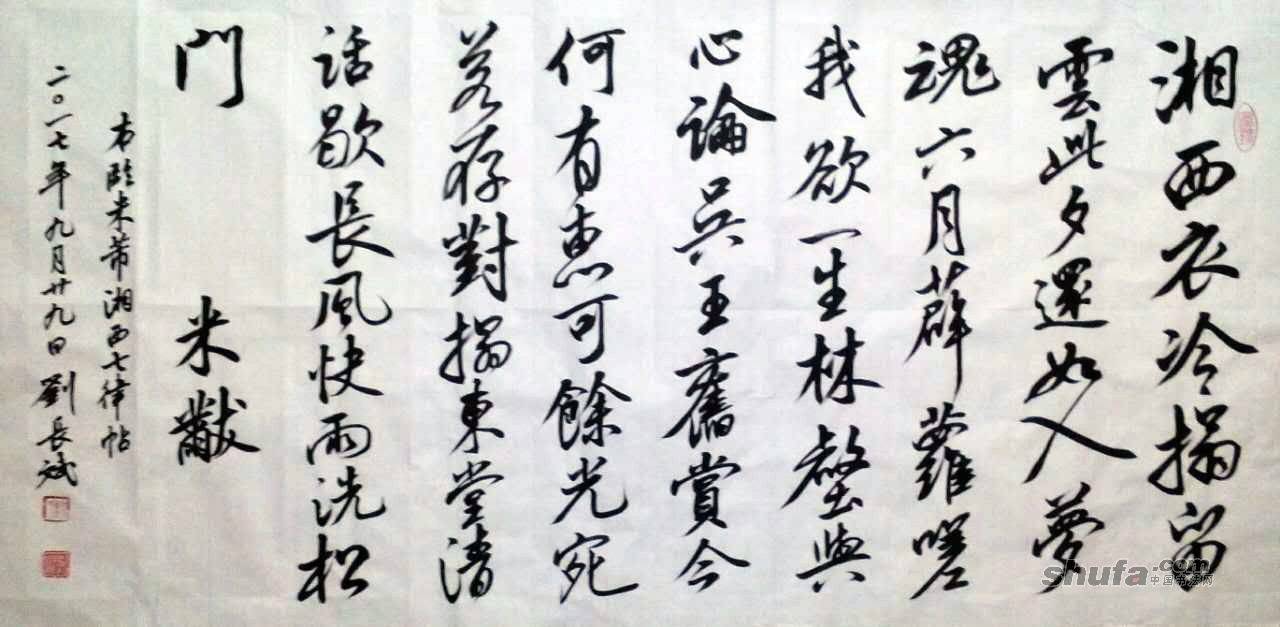 湘西衣冷搨留
雲此夕還如入夢
魂六月薜蘿嗟
我欲一生林壑與
心論吳王舊賞今
何有惠可餘光宛
若存對搨東堂清
話歇長風快雨洗松
門 米黻
右臨米芾湘西七律帖
二〇一七年九月廿九日劉長斌
shufa.com
中国书法网